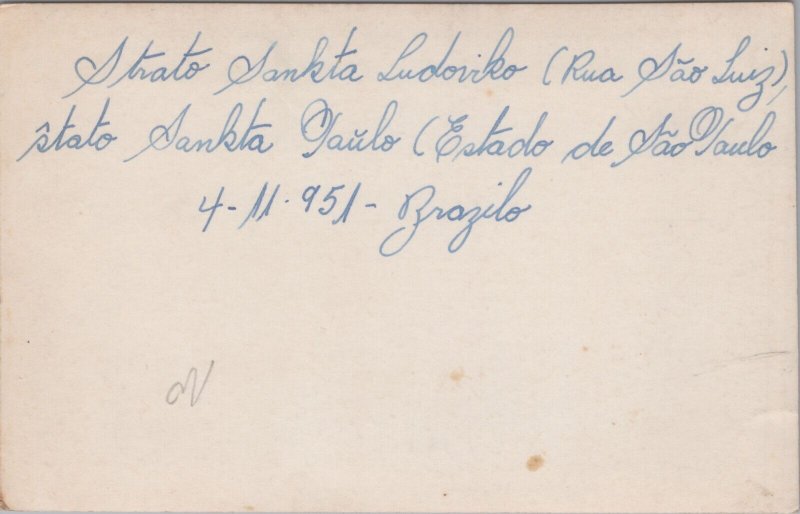 Strato Sankta Ludoviko (Rua São Luiz),
ŝtato Sankta Paŭlo (Estado de São Paulo
4-11-951- Brazilo